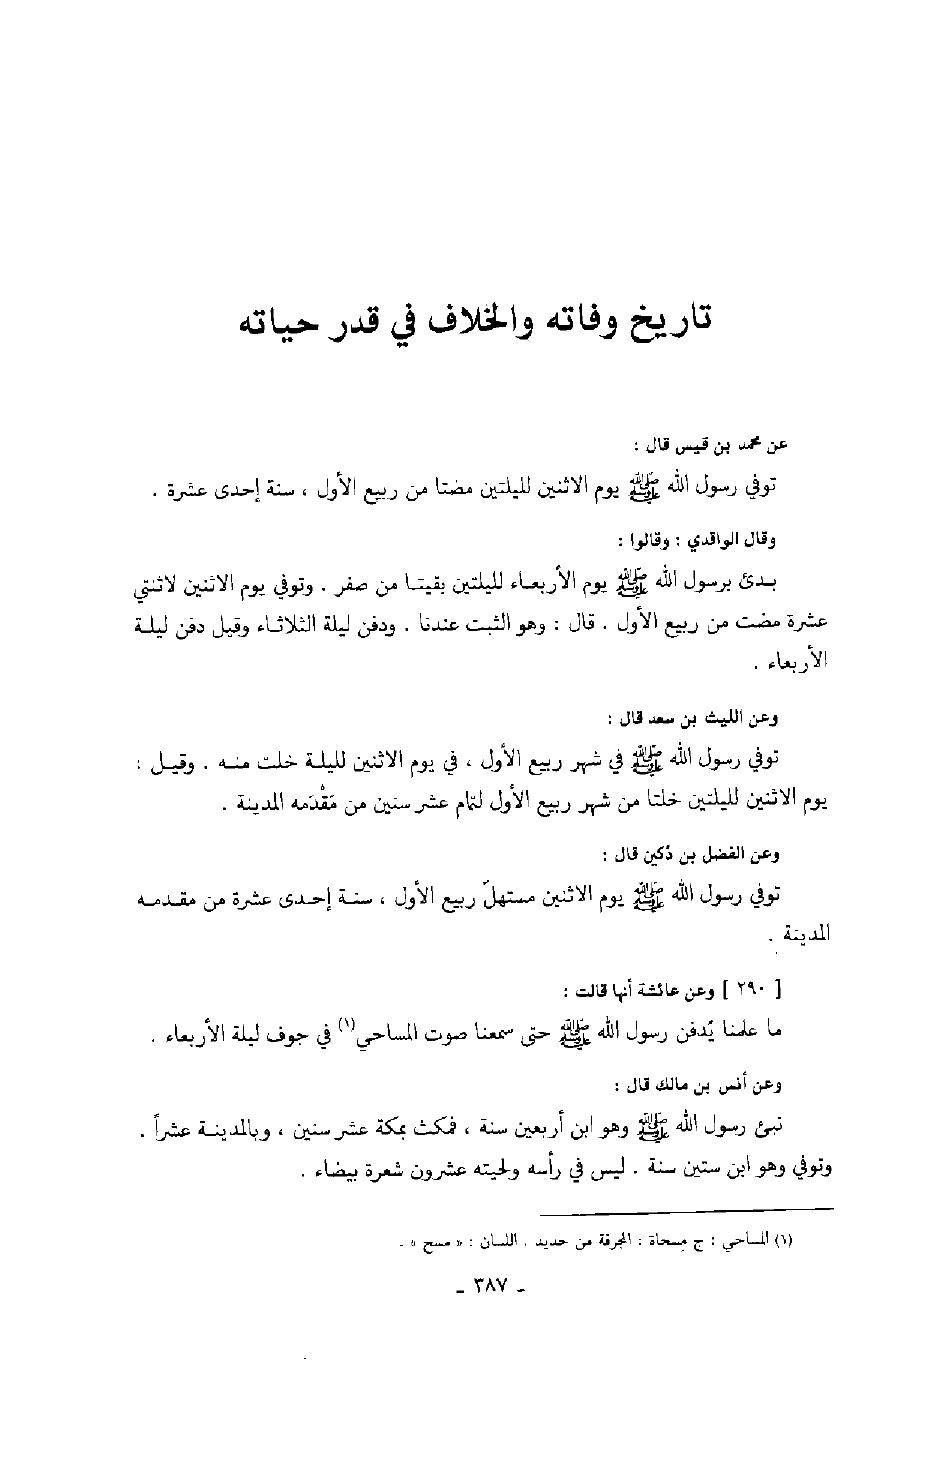 تاريخ وفاته والخلاف في قدر حياته
عن محمد بن قيس قال :
توفي رسول الله ﷺ يوم الاثنين لليلتين مضتا من ربيع الأول ، سنة إحدى عشرة .
وقال الواقدي : وقالوا :
بدئ برسول الله ﷺ يوم الأربعاء لليلتين بقيتا من صفر . وتوفي يوم الاثنين لاثنتي
عشرة مضت من ربيع الأول . قال : وهو الثبت عندنا . ودفن ليلة الثلاثاء وقيل دفن ليلة
الأربعاء .
وعن الليث بن سعد قال :
توفي رسول الله ﷺ في شهر ربيع الأول ، في يوم الاثنين لليلة خلت منه . وقيل :
يوم الاثنين لليلتين خلتا من شهر ربيع الأول لتمام عشر سنين من مَقْدَمه المدينة .
وعن الفضل بن دُكين قال :
توفي رسول الله ﷺ يوم الاثنين مستهلّ ربيع الأول ، سنة إحدى عشرة من مقدمه
المدينة .
[ ٢٩٠ ] وعن عائشة أنها قالت :
ما علمنا يُدفن رسول الله ﷺ حتى سمعنا صوت المساحي(١) في جوف ليلة الأربعاء .
وعن أنس بن مالك قال :
نبئ رسول الله ﷺ وهو ابن أربعين سنة ، فمكث بمكة عشر سنين ، وبالمدينة عشراً .
وتوفي وهو ابن ستين سنة . ليس في رأسه ولحيته عشرون شعرة بيضاء .
(١) المساحي : ج مِسحاة : المجرفة من حديد . اللسان : « مسح » .
- ٣٨٧ -